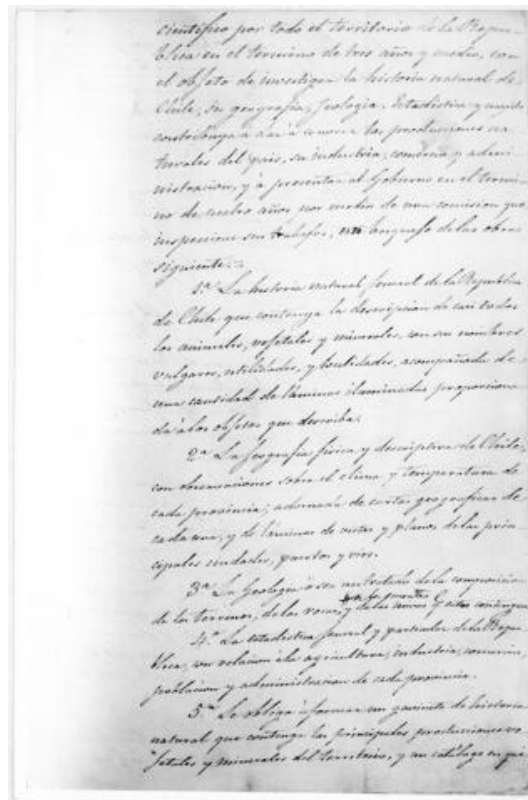 científico por todo el territorio de la Repu-
blica en el termino de tres años y medio, con
el objeto de investigar la historia natural de
Chile, su geografia, geologia, Estadistica y cuanto
contribuya a dar à conocer las producciones na
turales del pais, su industria, comercio y admi
nistracion, y à presentar al Gobierno en el termi
no de cuatro años por medio de una comision que
inspeccione sus trabajos, un bosquejo de las obras
siguientes.=
1.ª La historia natural jeneral de la Republica
de Chile que contenga la descripcion de casi todos
los animales, vejetales y minerales, con sus nombres
vulgares, utilidades, y localidades, acompañada de
una cantidad de láminas iluminadas proporciona
da à los objetos que describa.
2.ª La jeografia fisica y descriptiva de Chile,
con observaciones sobre el clima y temperatura de
cada provincia; adornada de cartas geograficas de
cada una, y de láminas de vistas y planos de las prin
cipales ciudades, puertos y rios.
3.ª La Geologia ò sea un tratado de la composicion
de los terrenos, de las rocas, y de las minas
4.ª La estadistica jeneral y particular de la Repu
blica, con relacion à la agricultura, industria, comercio,
poblacion y administracion de cada provincia.
5.ª Se obliga à formar un gavinete de historia
natural que contenga las principales producciones ve
jetales y minerales del territorio, y un catálogo en que